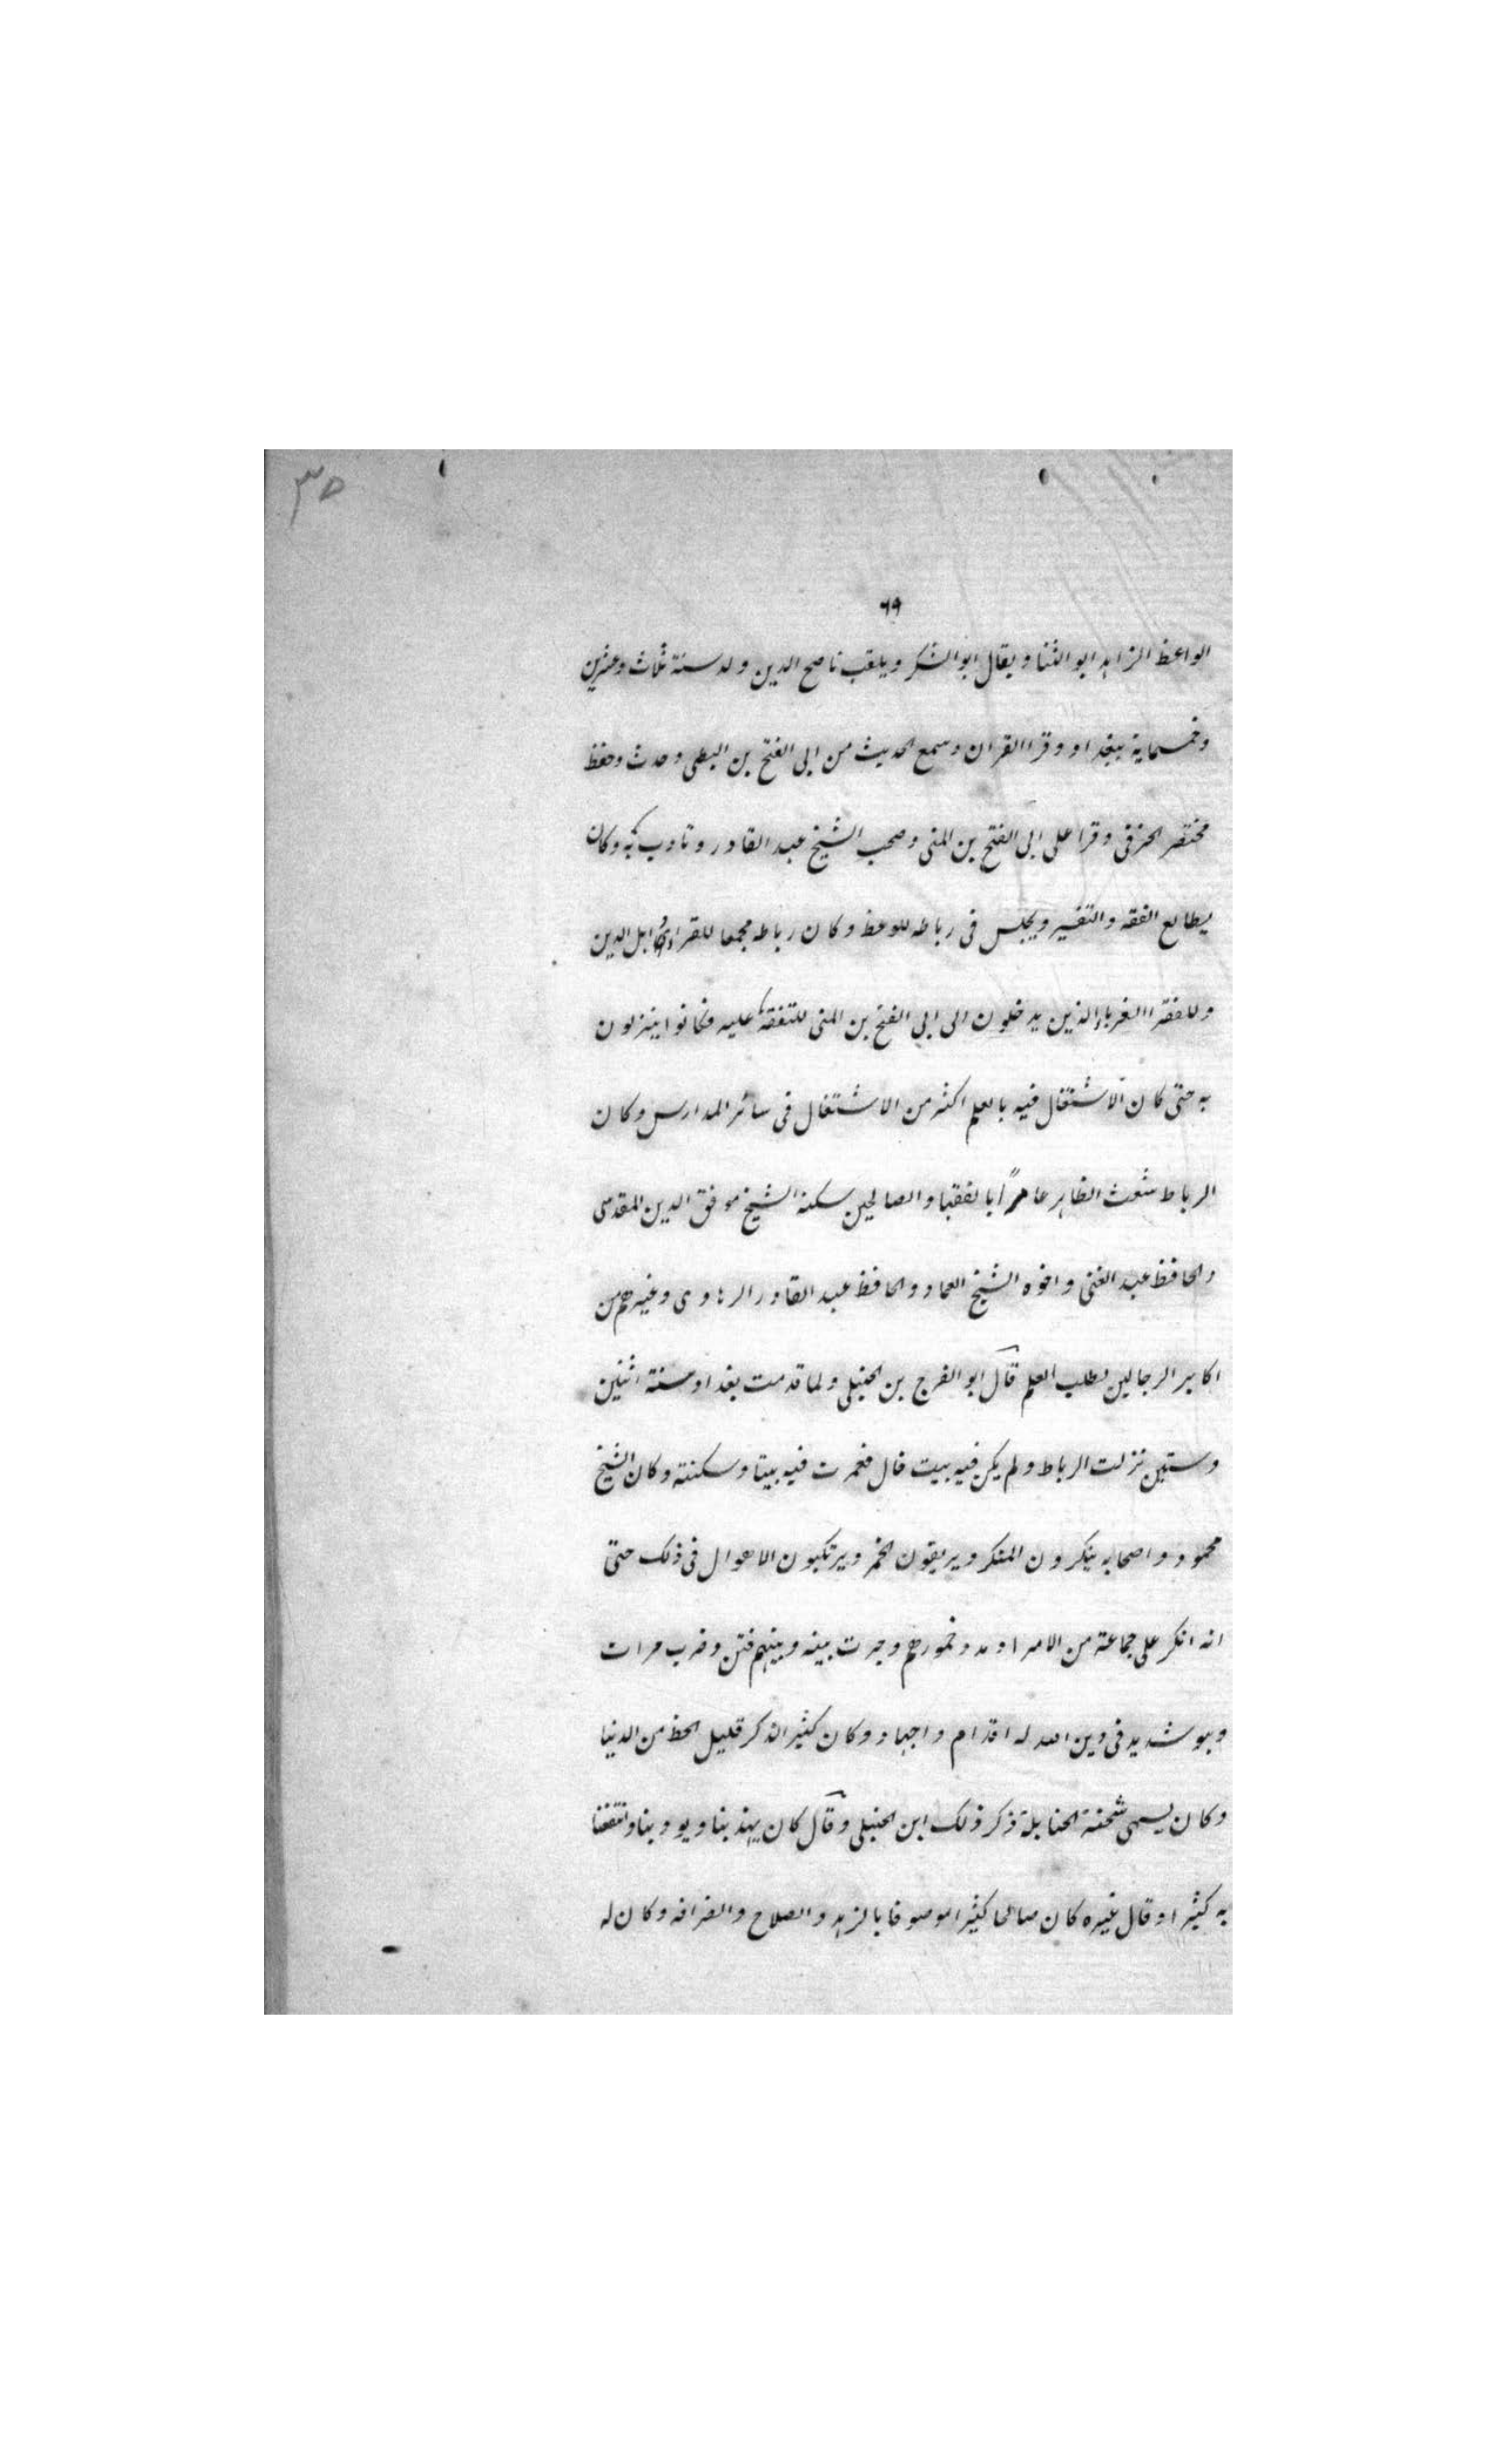 ٣٥
٦٩
الواعظ الزاهد ابو الثنا ويقال ابو الشكر ويلقب ناصح الدين ولد سنة ثلاث وعشرين
وخمسماية ببغداد وقرا القران وسمع الحديث من ابى الفتح بن البطى وحدث وحفظ
مختصر الخرقى وقرا على ابى الفتح بن المنى وصحب الشيخ عبد القادر وتادب به وكان
يطالع الفقه والتفسير ويجلس فى رباطه للوعظ وكان رباطه مجمعا للقراء اهل الدين
وللفقرا الغرباء الذين يدخلون الى ابى الفتح بن المنى للتفقه عليه فكانوا ينزلون
به حتى كان الاشتغال فيه بالعلم اكثر من الاشتغال فى سائر المدارس وكان
الرباط شعث الظاهر عامرًا بالفقها والصالحين سكنه الشيخ موفق الدين المقدسى
والحافظ عبد الغنى واخوه الشيخ العماد والحافظ عبد القادر الرهاوى وغيرهم من
اكابر الرحالين لطلب العلم قال ابو الفرج بن الحنبلى ولما قدمت بغداد سنة اثنين
وستين نزلت الرباط ولم يكن فيه بيت خال فعمرت فيه بيتا وسكنته وكان الشيخ
محمود واصحابه ينكرون المنكر ويريقون الخمر ويرتكبون الاهوال فى ذلك حتى
انه انكر على جماعة من الامرا وبدد خمورهم وجرت بينه وبينهم فتن وضرب مرات
وهو شديد فى دين الله له اقدام واجهاد وكان كثير الذكر قليل الحظ من الدنيا
وكان يسمى شحنة الحنابلة ذكر ذلك ابن الحنبلى وقال كان يهذبنا ويودبنا وانتفعنا
به كثيرا وقال غيره كان صالحا كثيرا موصوفا بالزهد والصلاح والضرافه وكان له